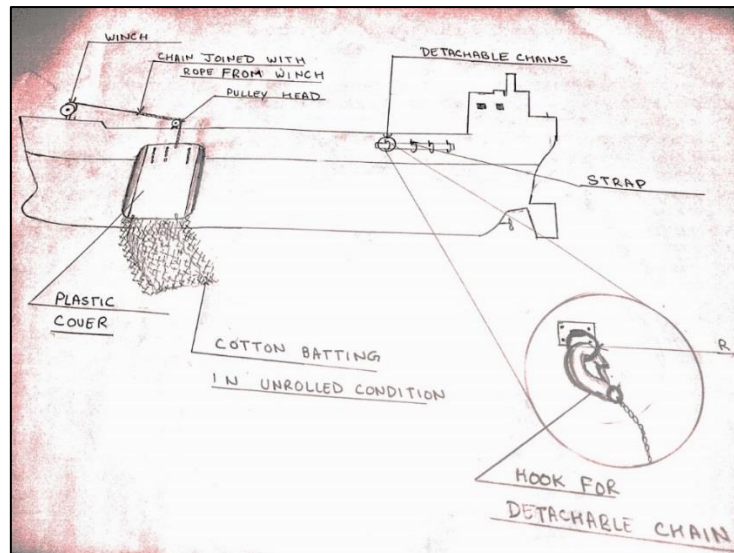 WINCH
CHAIN JOINED WITH
ROPE FROM WINCH
PULLEY HEAD
DETACHABLE CHAINS
STRAP
PLASTIC
COVER
COTTON BATTING
IN UNROLLED CONDITION
R
HOOK FOR
DETACHABLE CHAIN